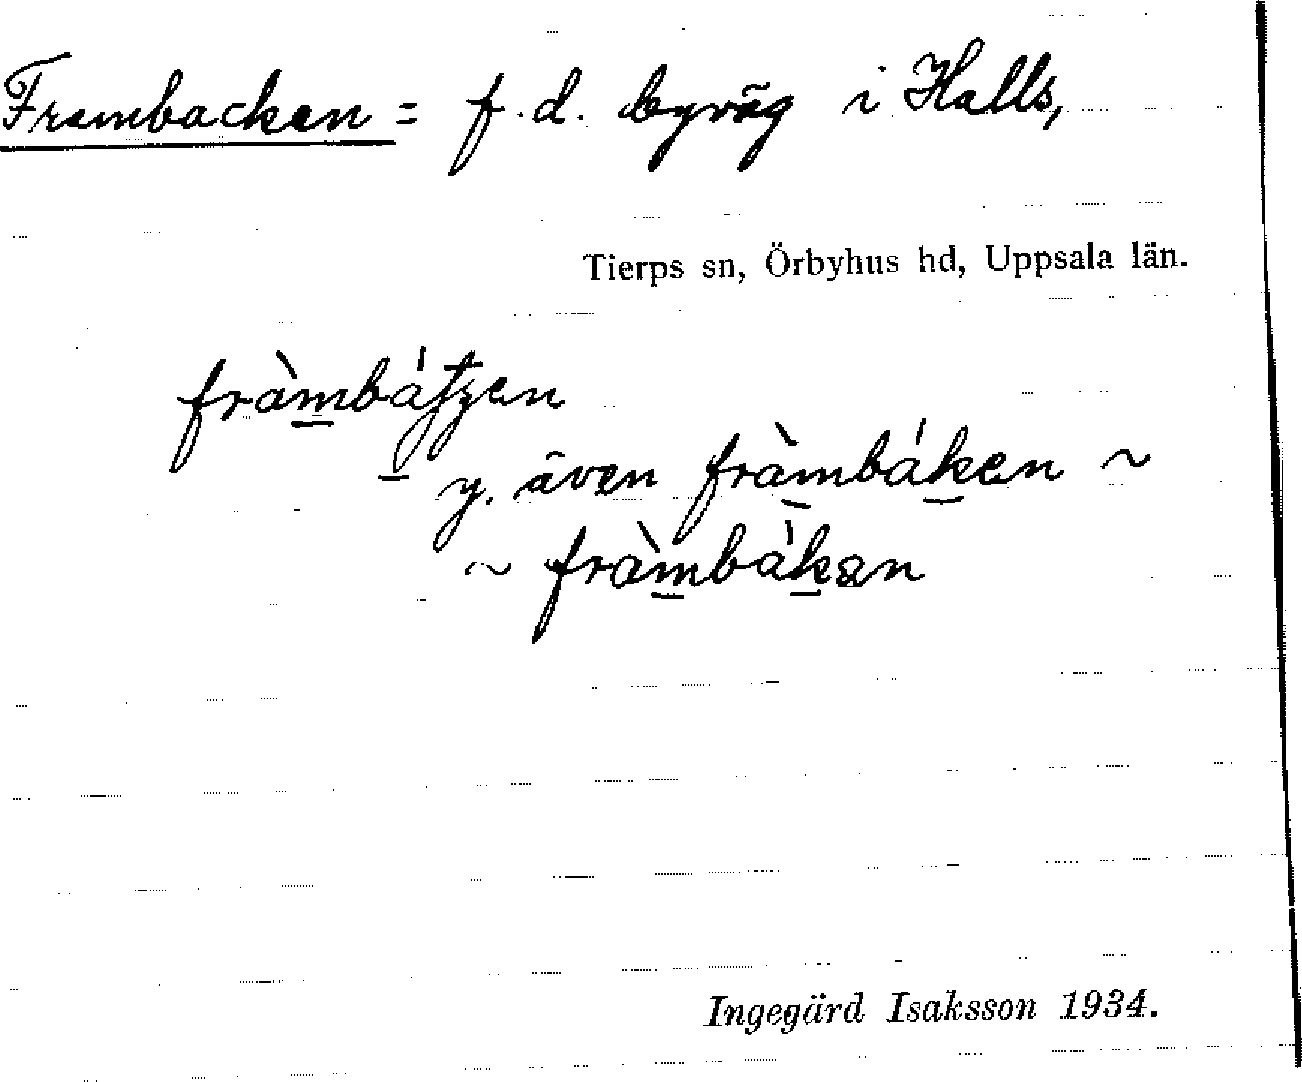 Frambacken = f.d. byväg i Halls,
Tierps sn, Örbyhus hd, Uppsala län.
y. även fràmbáken ~
~ fràmbàkan
Ingegärd Isaksson 1934.